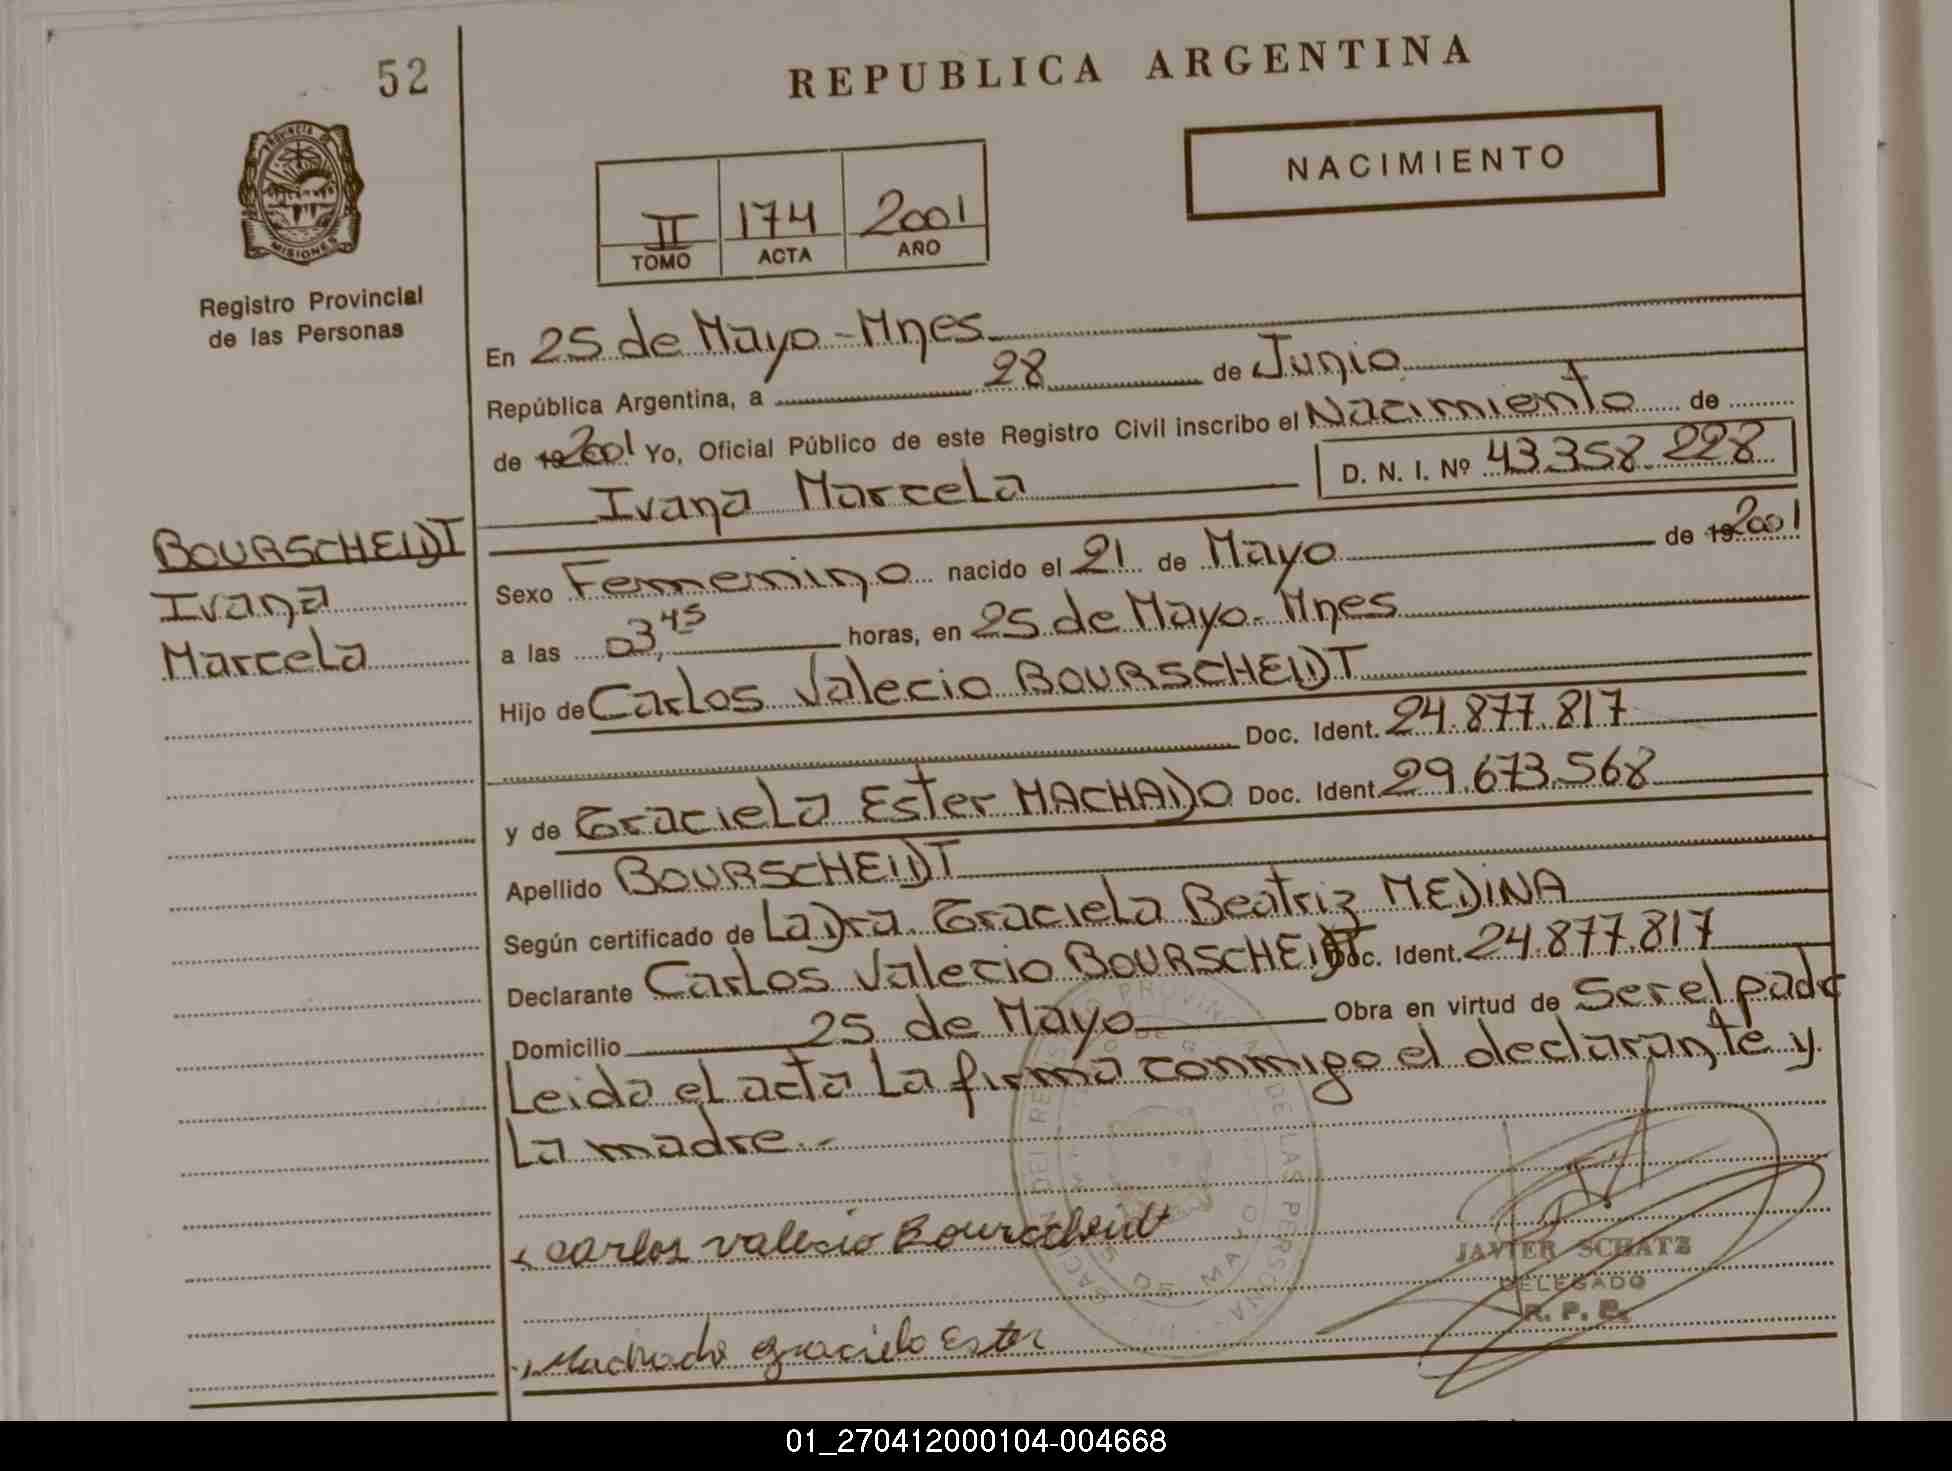 52
REPUBLICA ARGENTINA
PROVINCIA DE
MISIONES
NACIMIENTO
II 174 2001
TOMO ACTA AÑO
Registro Provincial
de las Personas
En 25 de Mayo - Mnes
República Argentina, a 28 de Junio
de 19 2001 Yo, Oficial Público de este Registro Civil inscribo el Nacimiento de
Ivana Marcela D. N. I. Nº 43.358.228
BOURSCHEIDT
Ivana
Marcela
Sexo Fememino nacido el 21 de Mayo de 19 2001
a las 03,45 horas, en 25 de Mayo - Mnes
Hijo de Carlos Valecio BOURSCHEIDT
Doc. Ident. 24.877.817
y de Graciela Ester MACHADO Doc. Ident. 29.673.568
Apellido BOURSCHEIDT
Según certificado de La Dra. Graciela Beatriz MEDINA
Declarante Carlos Valecio BOURSCHEIDT Doc. Ident. 24.877.817
Domicilio 25 de Mayo Obra en virtud de Ser el padre
Leida el acta La firma conmigo el declarante y
La madre.-
Carlos Valecio Bourscheidt
JAVIER SCHATZ
DELEGADO
R. P. P.
Machado Graciela Ester
01_270412000104-004668